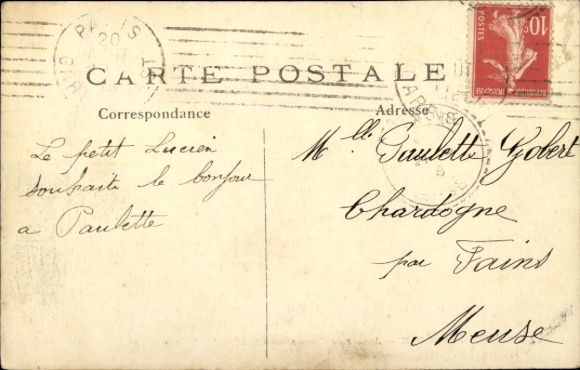 PARIS
20
GARE
EST
10c
POSTES
CARTE POSTALE
Correspondance
Adresse
Le petit Lucien
souhaite le bonjour
a Paulette
Mlle Paulette Gobert
Chardogne
par Fains
Meuse